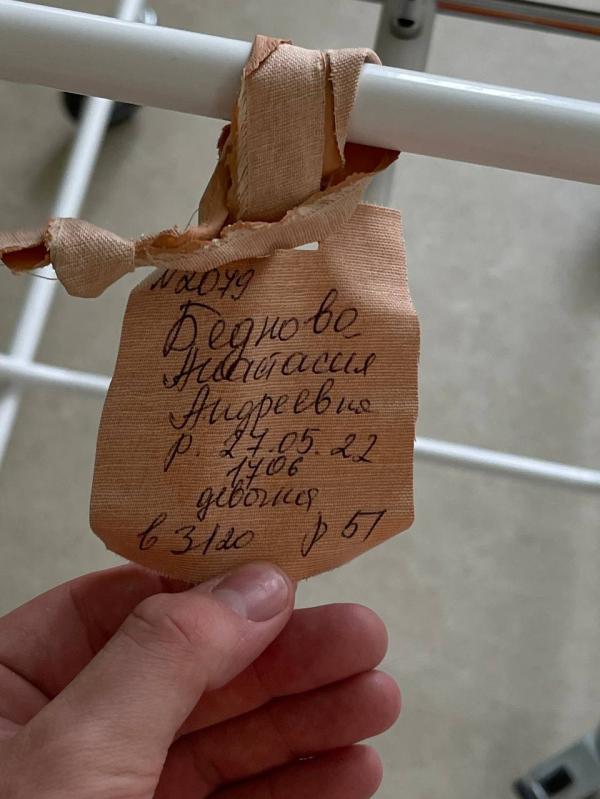 N2079
Беднова
Анастасия
Андреевна
р. 27.05.22
1706
девочка
в 3120 р 51